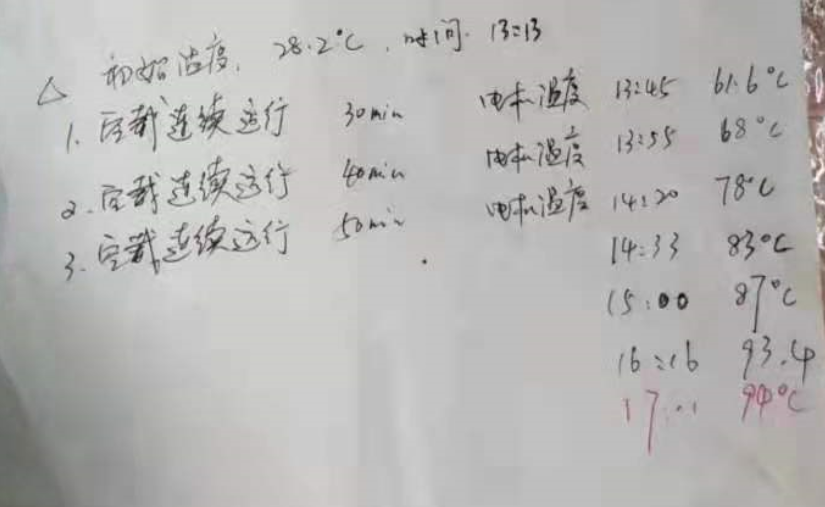 △ 初始温度, 28.2°C, 时间. 13:13
1. 空载连续运行 30min 电机温度 13:45 61.6°C
2. 空载连续运行 40min 电机温度 13:55 68°C
3. 空载连续运行 50min 电机温度 14:20 78°C
14:33 83°C
15:00 87°C
16:16 93.4
17:01 94°C